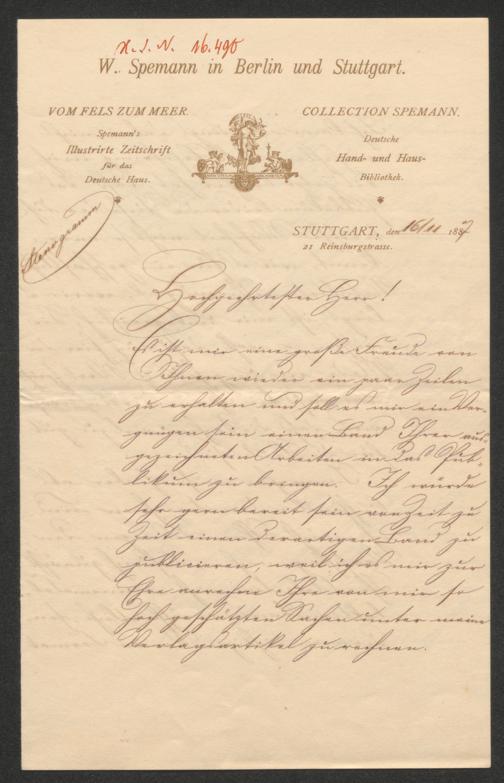 H. I. N. 16.490
W. Spemann in Berlin und Stuttgart.
VOM FELS ZUM MEER.
Spemann's
Illustrirte Zeitschrift
für das
Deutsche Haus.
COLLECTION SPEMANN.
Deutsche
Hand- und Haus-
Bibliothek.
Stenogramm
STUTTGART, den 16/11 1887
21 Reinsburgstrasse.
Hochgeehrtester Herr!
Es ist mir eine große Freude von
Ihnen wieder ein paar Zeilen
zu erhalten und soll es mir ein Ver-
gnügen sein einen Band Ihrer aus-
gezeichneten Arbeiten in das Pub-
likum zu bringen. Ich würde
sehr gern bereit sein von Zeit zu
Zeit einen derartigen Band zu
publicieren, weil ich es mir zur
Ehre anrechne Ihre von mir so
hoch geschätzten Sachen unter meine
Verlagsartikel zu rechnen.